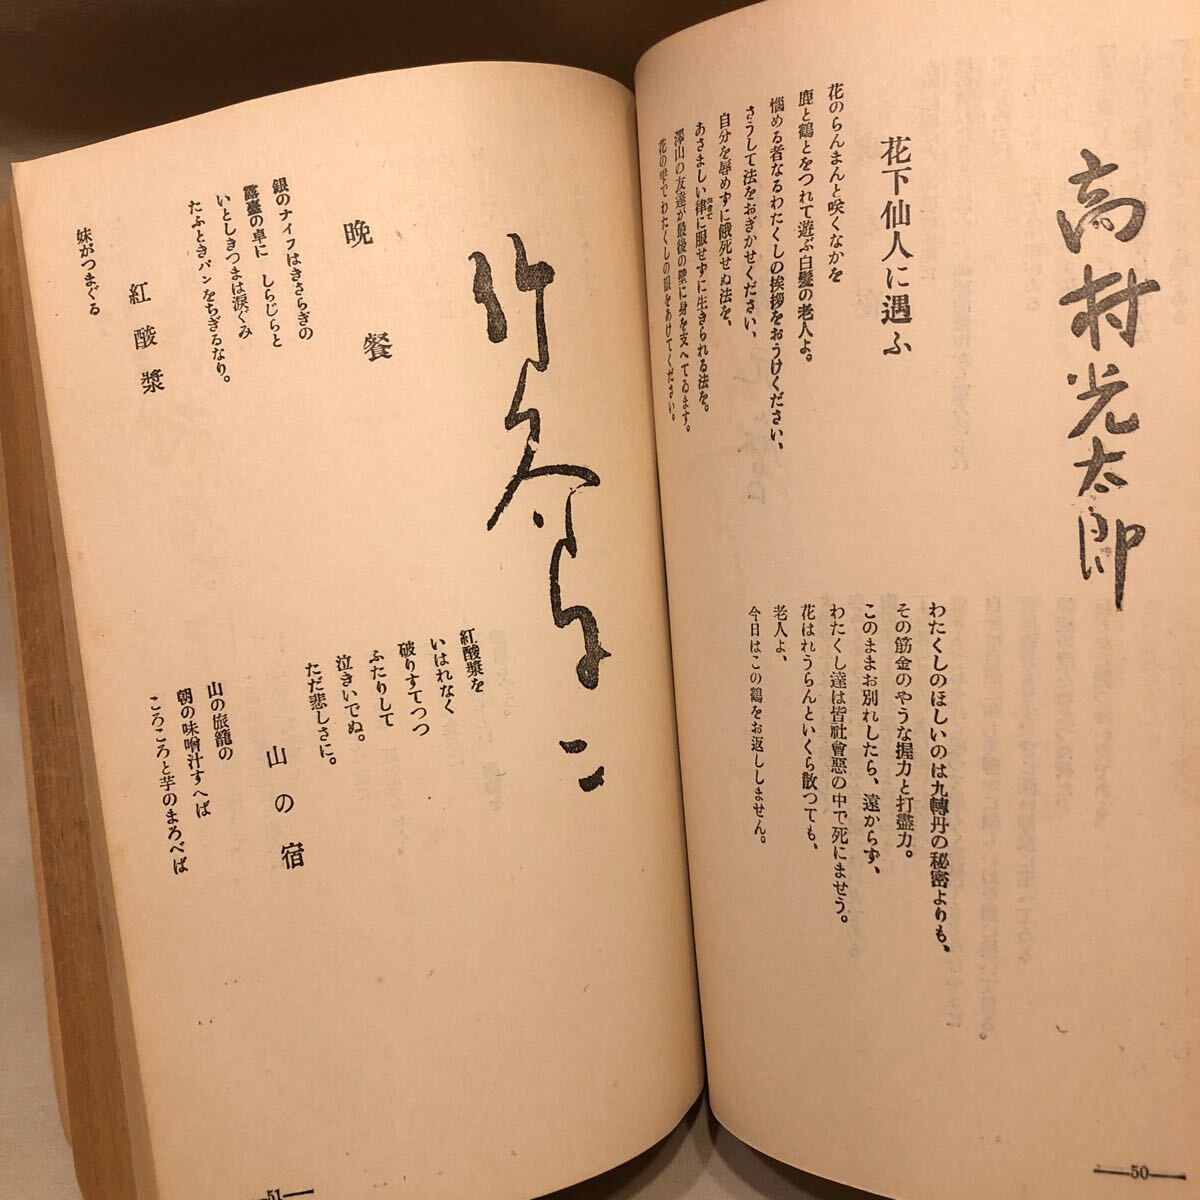 高村光太郎
花下仙人に遇ふ
花のらんまんと咲くなかを
鹿と鶴とをつれて遊ぶ白髪の老人よ。
惱める者なるわたくしの挨拶をおうけください、
さうして法をおきかせください、
自分を辱めずに餓死せぬ法を、
あさましい律に服せずに生きられる法を。
澤山の友達が最後の壁に身を支へてゐます。
花の雫でわたくしの眼をあけてください。
わたくしのほしいのは九轉丹の秘密よりも、
その筋金のやうな握力と打盡力。
このままお別れしたら、遠からず、
わたくし達は皆社會惡の中で死にませう。
花はれうらんといくら散つても、
老人よ、
今日はこの鶴をお返ししません。
50
竹久夢二
晩餐
銀のナイフはきさらぎの
露臺の卓に しらじらと
いとしきつまは涙ぐみ
たふときパンをちぎるなり。
紅酸漿
妹がつまぐる
紅酸漿を
いはれなく
破りすてつつ
ふたりして
泣きいでぬ。
ただ悲しさに。
山の宿
山の旅籠の
朝の味噌汁すへば
ころころと芋のまろべば
51